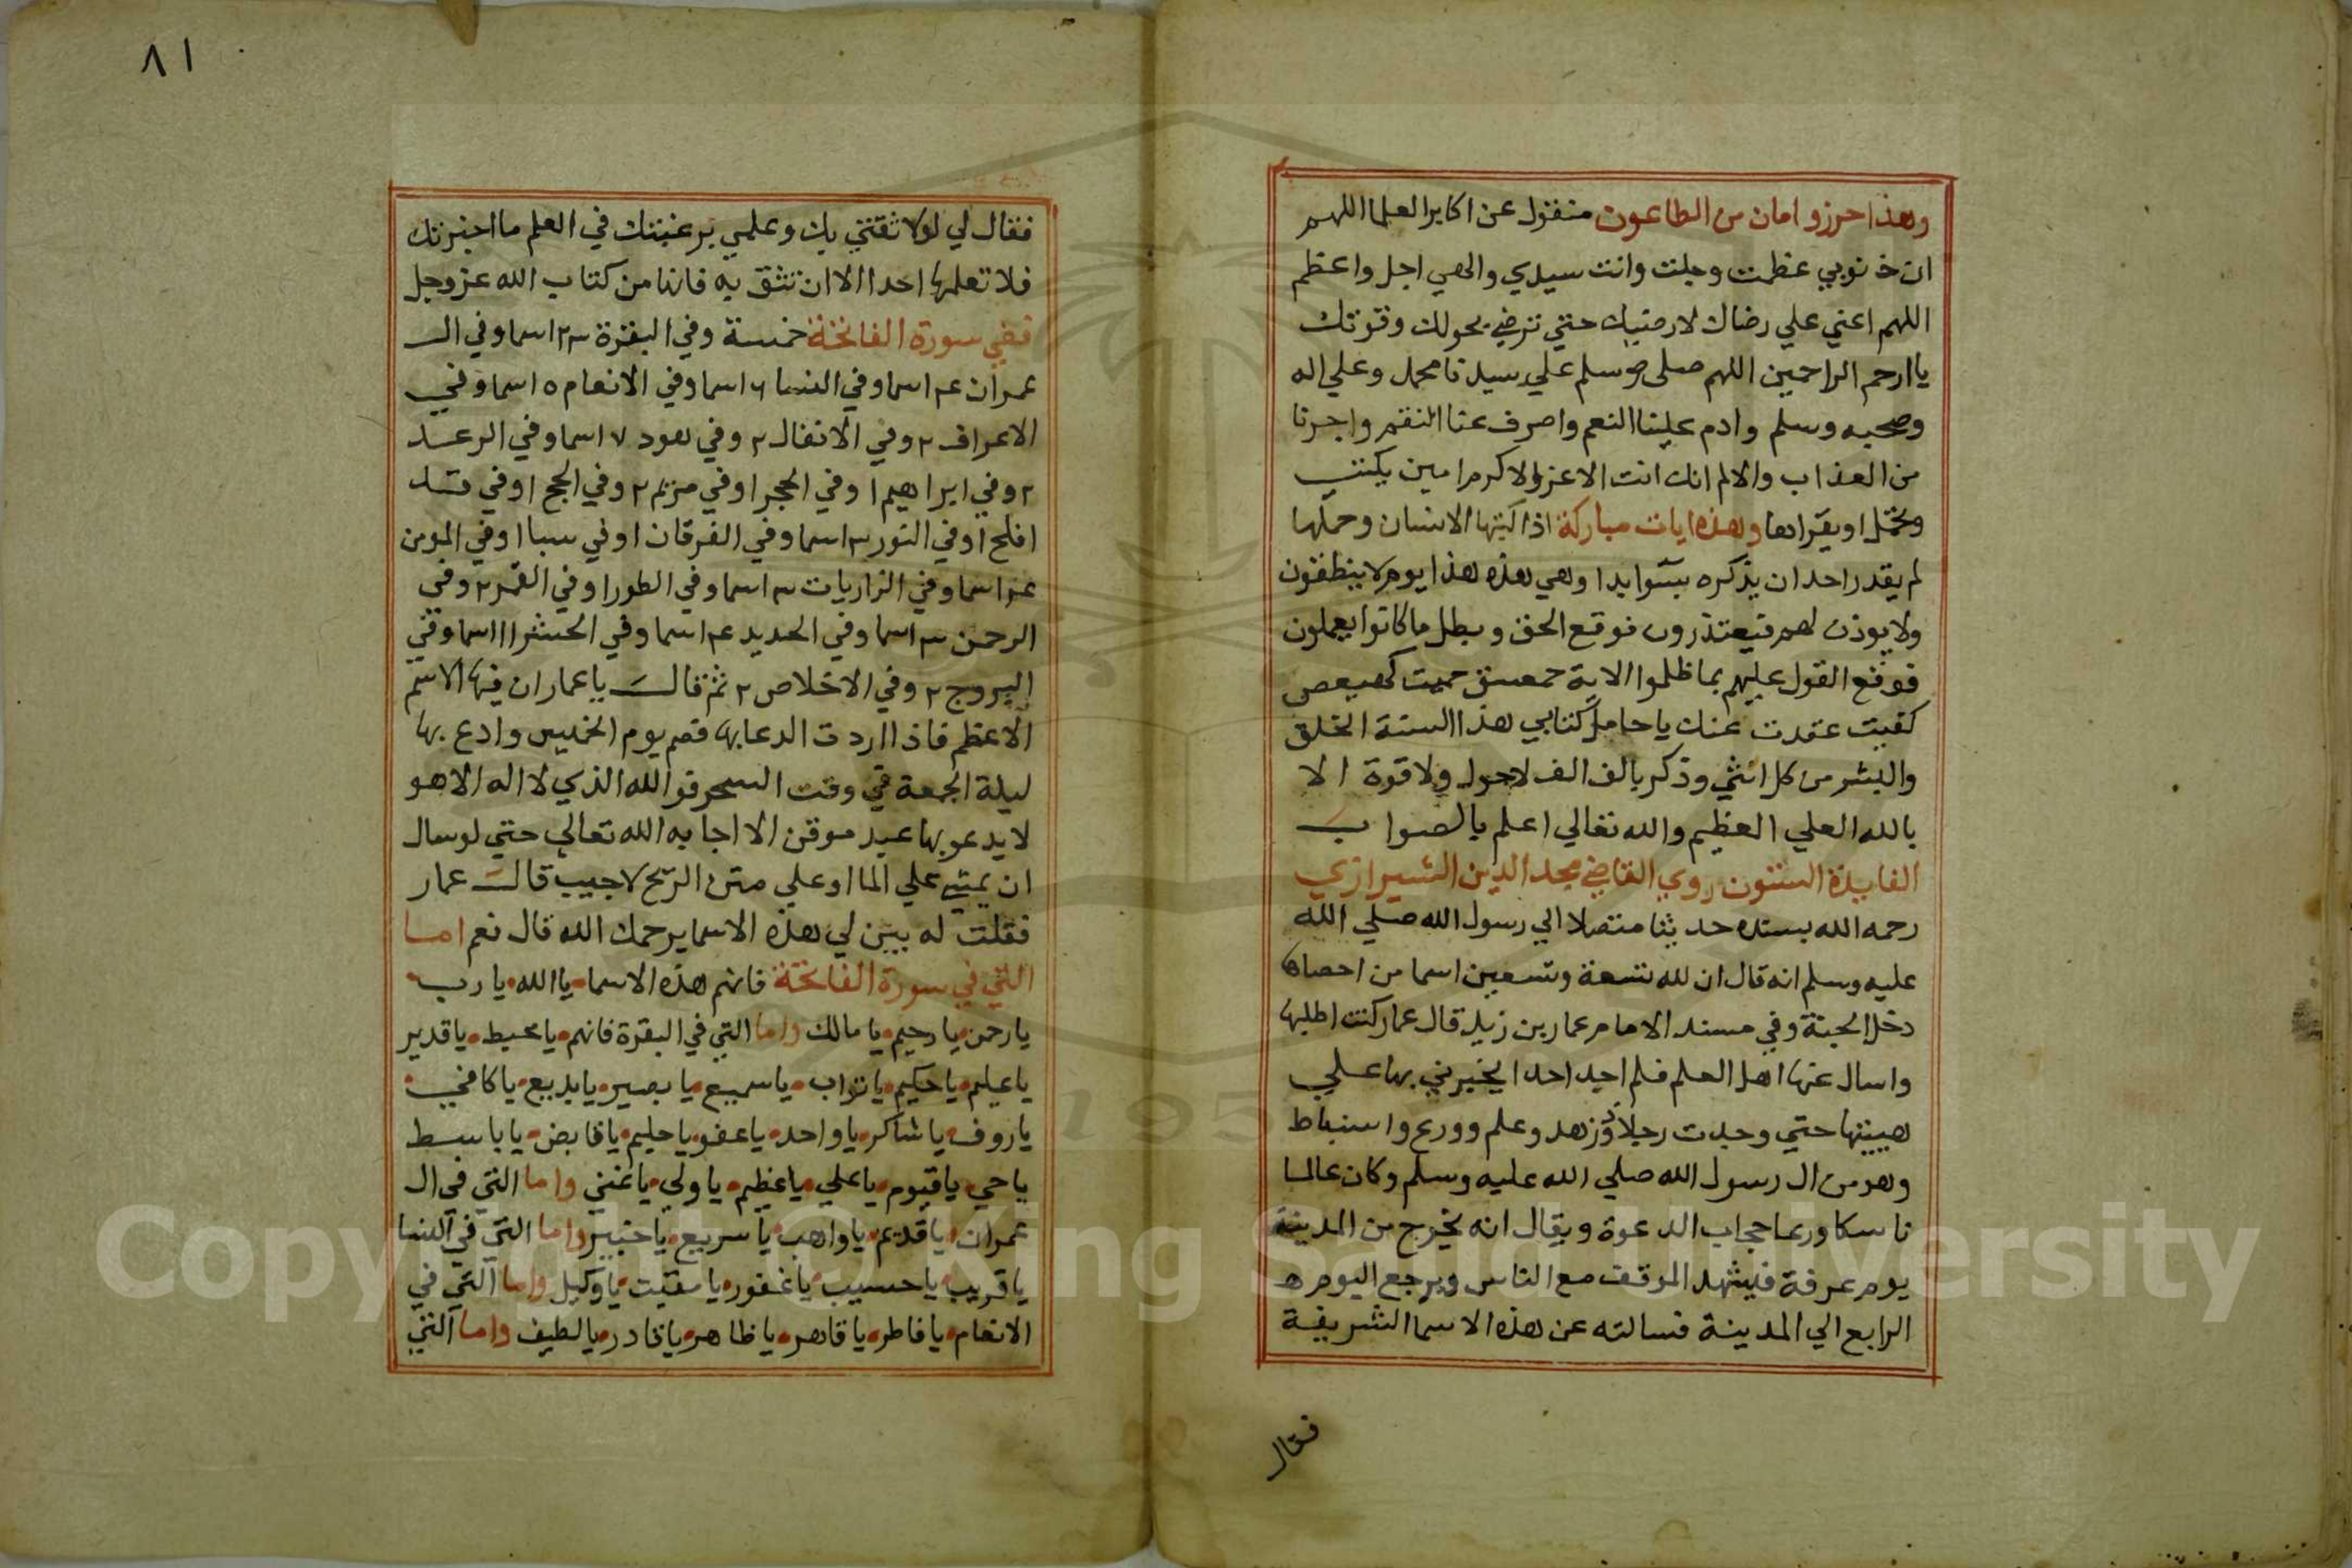 وهذا حرز وامان من الطاعون منقول عن اكابر العلما اللهم
ان ذنوبي عظمت وجلت وانت سيدي والهي اجل واعظم
اللهم اعني علي رضاك لارضيك حتي ترضي بحولك وقوتك
ياارحم الراحمين اللهم صلي وسلم علي سيدنا محمد وعلي اله
وصحبه وسلم وادم علينا النعم واصرف عنا النقم واجرنا
من العذاب والالم انك انت الاعز والاكرم امين يكتب
ويحمل او يقراها وهذه ايات مباركة اذا كتبها الانسان وحملها
لم يقدر احد ان يذكره بسو ابدا وهي هذه هذا يوم لا ينطقون
ولا يوذن لهم فيعتذرون فوقع الحق وبطل ما كانوا يعملون
فوقع القول عليهم بما ظلموا الاية حمعسق حميت كهيعص
كفيت عقدت عنك يا حامل كتابي هذا السنة الخلق
والبشر من كل انثي وذكر بالف الف لاحول ولا قوة الا
بالله العلي العظيم والله تعالي اعلم بالصواب
الفايدة الستون روي القاضي مجد الدين الشيرازي
رحمه الله بسنده حديثا متصلا الي رسول الله صلي الله
عليه وسلم انه قال ان لله تسعة وتسعين اسما من احصاها
دخل الجنة وفي مسند الامام عمار بن زيد قال عمار كنت اطلبها
واسال عنها اهل العلم فلم اجد احدا يخبرني بها علي
هييتها حتي وجدت رجلا ذو زهد وعلم وورع واستنباط
وهو من ال رسول الله صلي الله عليه وسلم وكان عالما
ناسكا وربما حجاب الدعوة ويقال انه يخرج من المدينة
يوم عرفة فيشهد الموقف مع الناس ويرجع اليوم
الرابع الي المدينة فسالته عن هذه الاسما الشريفة
فقال
٨١
فقال لي لولا ثقتي بك وعلمي برغبتك في العلم ما اخبرتك
فلا تعلمها احدا الا ان تثق به فانها من كتاب الله عز وجل
ففي سورة الفاتحة خمسة وفي البقرة ٢٣ اسما وفي ال
عمران ٤ اسما وفي النسا ٦ اسما وفي الانعام ٥ اسما وفي
الاعراف ٢ وفي الانفال ٢ وفي هود ٧ اسما وفي الرعد
٢ وفي ابراهيم ١ وفي الحجر ١ وفي مريم ٢ وفي الحج ١ وفي قد
افلح ١ وفي النور ٣ اسما وفي الفرقان ١ وفي سبا ١ وفي المومن
٤ اسما وفي الذاريات ٣ اسما وفي الطور ١ وفي القمر ٢ وفي
الرحمن ٣ اسما وفي الحديد ٤ اسما وفي الحشر ١١ اسما وفي
البروج ٢ وفي الاخلاص ٢ ثم قال يا عمار ان فيها الاسم
الاعظم فاذا اردت الدعا بها فصم يوم الخميس وادع بها
ليلة الجمعة في وقت السحر فوالله الذي لا اله الا هو
لا يدعو بها عبد موقن الا اجابه الله تعالي حتي لو سال
ان يمشي علي الما او علي متن الريح لاجيب قال عمار
فقلت له بين لي هذه الاسما يرحمك الله قال نعم اما
التي في سورة الفاتحة فانهم هذه الاسما يا الله يا رب
يا رحمن يا رحيم يا مالك واما التي في البقرة فانهم يا محيط يا قدير
يا عليم يا حكيم يا تواب يا سميع يا بصير يا بديع يا كافي
يا روف يا شاكر يا واحد يا عفو يا حليم يا قابض يا باسط
يا حي يا قيوم يا علي يا عظيم يا ولي يا غني واما التي في ال
عمران يا قديم يا واهب يا سريع يا خبير واما التي في النسا
يا قريب يا حسيب يا غفور يا مقيت يا وكيل واما التي في
الانعام يا فاطر يا قاهر يا ظاهر يا قادر يا لطيف واما التي
Copyright © King Saud University